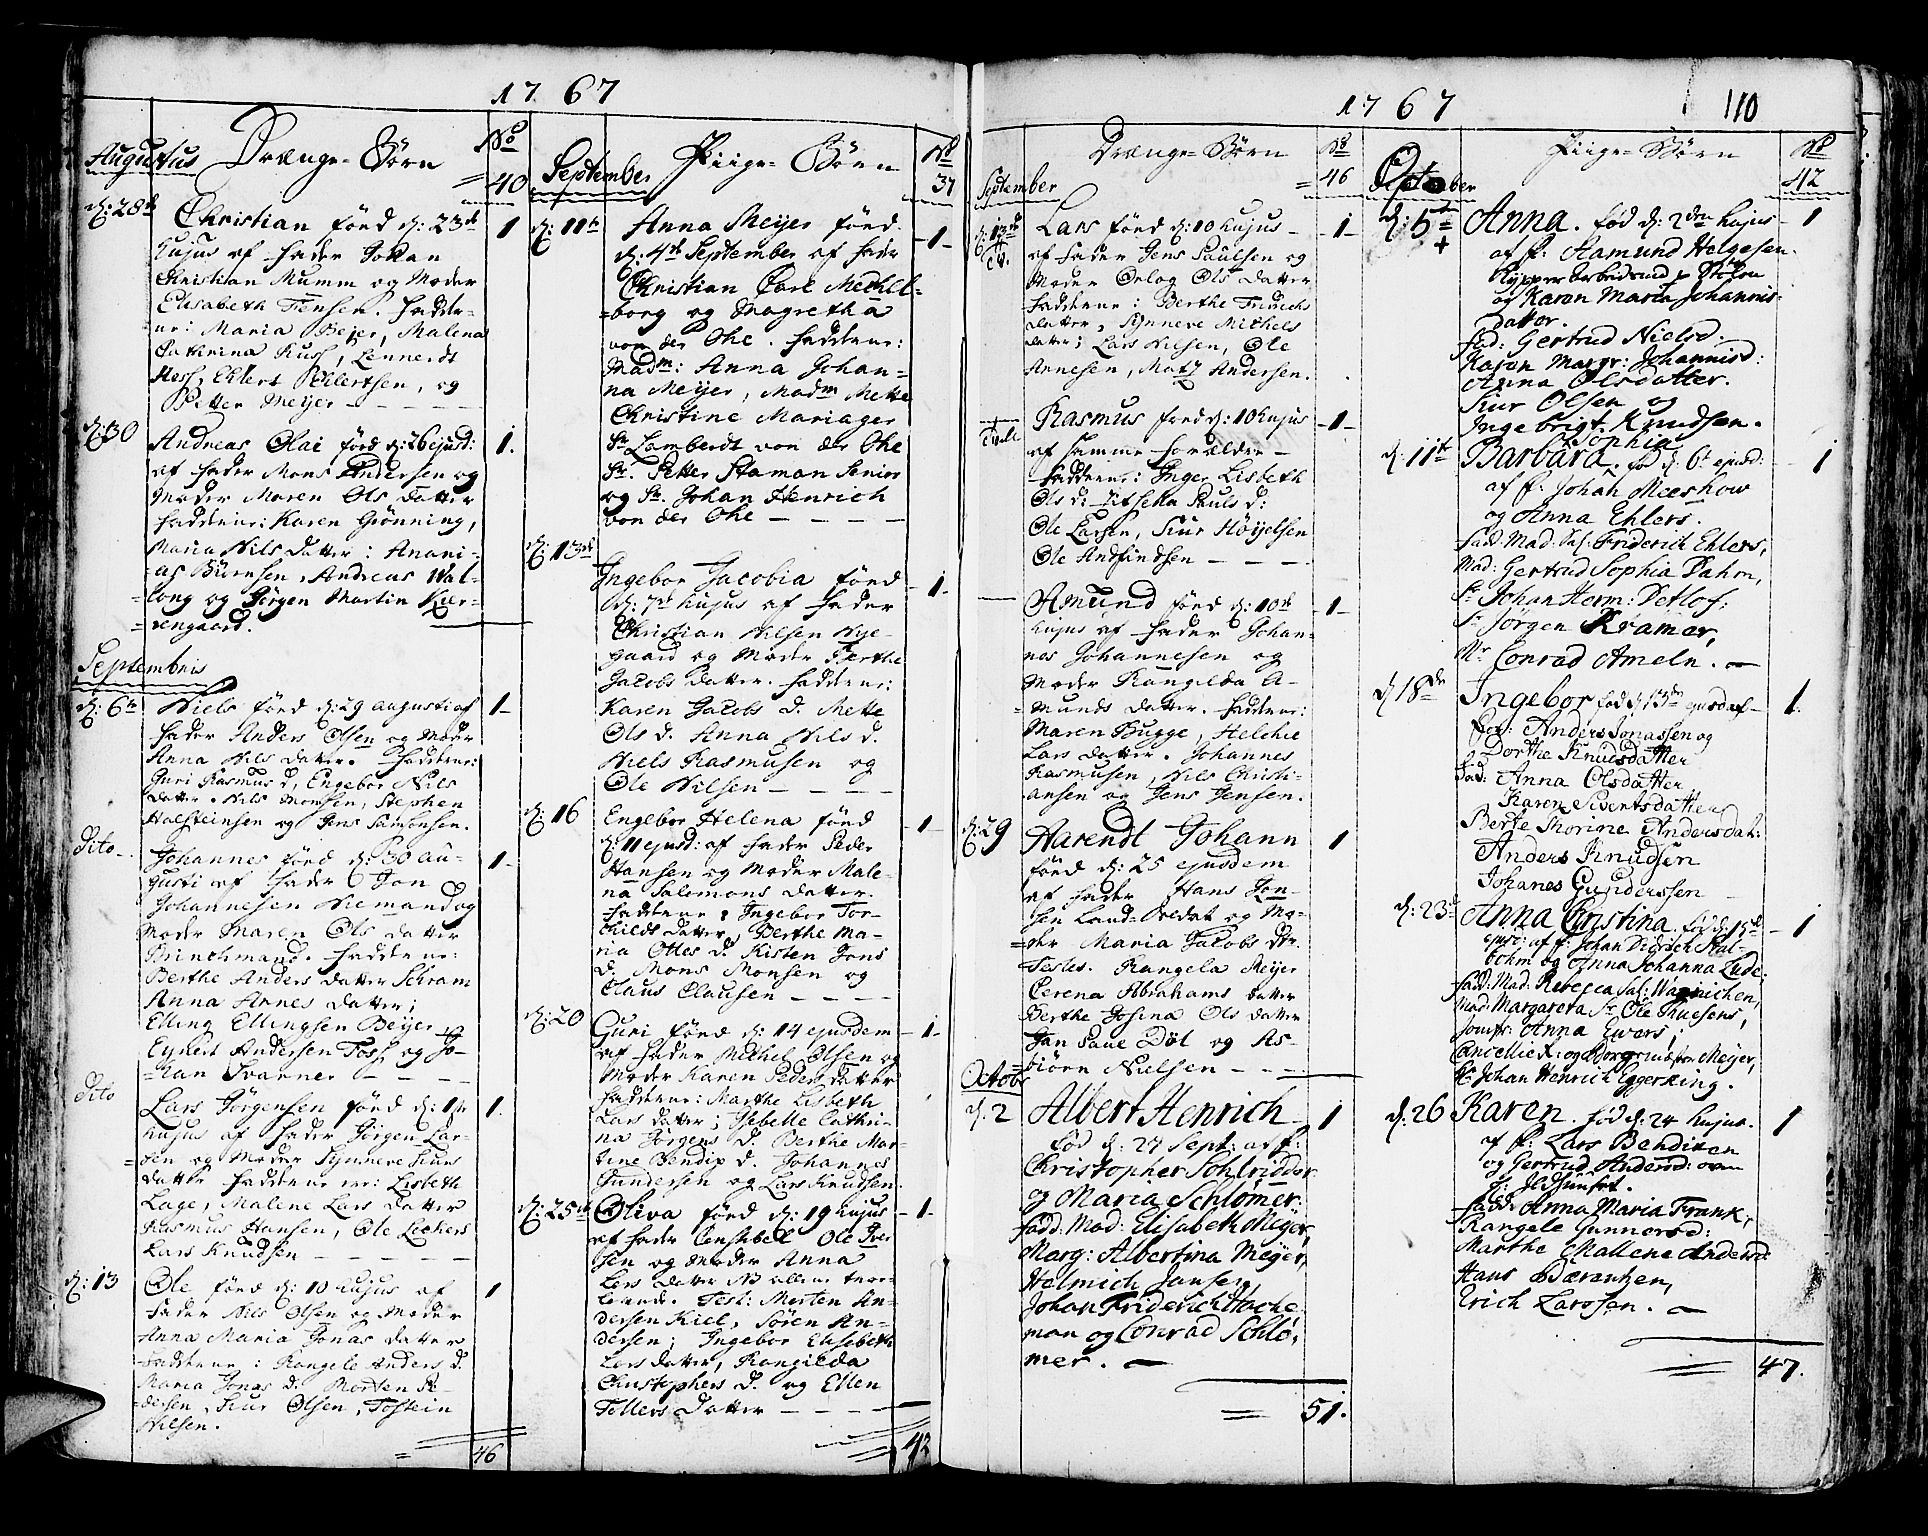 1767
Augustus Drænge-Børn No
= 40
d: 28de Christian föed d: 23de 1
hujus af Fader Johan
Christian Mumm og Moder
Elisabeth Fensen. Fadder-
ne: Maria Beyer, Malena
Cathrina Kush, Lennerdt
Hess, Ehlert Eilertsen, og
Petter Meyer
d: 30 Andreas Olai föed d: 26 ejusd: 1.
af Fader Mons Andersen og
Moder Maren Ols Datter
Faddene: Karen Grönning,
Maria Nils Datter: Anani-
as Börnsen, Andreas Wal-
long og Jörgen Martin Kier-
rengaard.
Septembris
d: 6te Niels föed d: 29 augusti af 1
Fader Anders Olsen og Moder
Anna Nils Datter. Faddene:
Guri Rasmus d, Engebor Nils
Datter. Nils Monsen, Stephen
Halsteinsen og Jens Samsonsen.
Dito Johannes föed d: 30 au- 1
gusti af Fader Jon
Johannesen Niemand og
Moder Maren Ols Datter
Brinchmand. Faddene:
Berthe Anders Datter Schram
Anna Arnes Datter;
Elling Ellingsen Beyer
Eynert Andersen Foss og Jo-
han Svanner
Dito Lars Jörgensen föed d: 1ste 1.
hujus af Fader Jörgen Lar-
sen og Moder Synneve Siurs
Datter Faddene ere: Lisbeth
Lage, Malene Lars Datter
Rasmus Hansen, Ole Lechers
Lars Knudsen
d: 13 Ole föed d: 10 hujus af 1
Fader Nils Olsen og Moder
Anna Maria Jonas Datter
Faddene: Rangele Anders d.
Maria Jonas d. Morten Pe-
dersen, Siur Olsen, Tostein
Nilsen.
= 46
September Piige-Börn No
37
d: 11te Anna Meyer föed 1
d: 4de September af Fader
Christian Carl Mechel-
borg og Magretha
von der Ohe. Faddene:
Madm: Anna Johan-
na Meyer, Madm Mette
Christine Mariager
Sr. Lamberdt von der Ohe
Sr. Petter Staman Senior
og Sr. Johan Henrich
von der Ohe
d: 13de Ingebor Jacobia föed 1
d: 7de hujus af Fader
Christian Nilsen Nye-
gaard og Moder Berthe
Jacobs Datter. Faddene:
Karen Jacobs D. Mette
Ols d. Anna Nils d.
Niels Rasmusen og
Ole Nilsen
d: 16 Engebor Helena föed 1
d: 11 ejusd: af Fader Peder
Hansen og Moder Male-
na Salomons Datter.
Faddene: Ingebor Tor-
childs Datter, Berthe Ma-
ria Ottes d. Kisten Jons
d. Mons Monsen og
Claus Clausen
d: 20 Guri föed d: 14 ejusdem 1
af Fader Michel Olsen og
Moder Karen Peders Datter
Faddene: Marthe Lisbeth
Lars Datter; Isebelle Cathri-
na Jörgens D. Berthe Mar-
tine Bendix d. Johannes
Gundersen og Lars Knudsen.
d: 25de Oliva föed d: 19 hujus 1
af Fader Constabel Ole Iver
sen og Moder Anna
Lars Datter
Test: Morten An-
dersen Kiel, Sören An-
dersen; Ingebor Elisebeth
Lars Datter, Rangilda
Christophers D. og Ellen
Tollevs Datter
42
1767 110
September Drænge-Börn No
= 46
d: 13de Lars föed d: 10 hujus 1
af Fader Jens Paulsen og
Moder Orlog Ols Datter
Faddene: Berthe Fridrichs
Datter, Synneve Michels
Datter; Lars Nilsen, Ole
Annesen, Mats Andersen.
Rasmus föed d: 10 hujus 1
af Samme Forældre
Faddene: Inger Lisbeth
Ols d: Pauls d:
Ole Larsen, Siur Höyelsen
Ole Andfindsen
Amund föed d: 10de 1
hujus af Fader Johan-
nes Johannesen og
Moder Rangilda A-
munds Datter. Faddene:
Maren Bugge, Helchie
Lars Datter. Johannes
Rasmusen, Nils Christi-
ansen og Jens Jensen.
d: 29 Aarendt Johann 1
föed d: 25 ejusdem
af Fader Hans Jon-
sen Land-Soldat og Mo-
der Maria Jacobs dtr.
Testes. Rangela Meyer
Cerena Abrahams Datter
Berthe Josina Ols Datter
Jan Saue Döl og As-
biörn Nielsen
Octobr
d. 2 Albert Henrich 1
född d: 27 Sept: af f:
Christopher Sohlridder
og Maria Schlömer:
fadd: Mad: Elisabeth Meyer,
Marg: Albertina Meyer,
Helmich Jansen,
Johan Friderich Hache
man og Conrad Schlö,
mer.
= 51.
October Piige-Börn No
42
d: 5te + Anna. fød d: 2den hujus 1
af f: Aamund Helgesen
og Karen Maria Johannis-
datter.
fad: Gertrud Nielsd:
Karen Margr: Johannisd:
Anna Olsdatter.
Siur Olsen og
Ingebrigt Knudsen.
d: 11te Barbara Sophia, fød d. 6te ejusd: 1
af f: Johan Meeshow
og Anna Ehlers.
fad: Mad: Sal. Friderich Ehlers,
Mad: Gertrud Sophia Dahm,
Sr Johan Herm: Detlof:
Sr Jörgen Kramer,
Mr Conrad Ameln.
d 18de Ingebor fød d: 13de ejusd af 1.
for: Anders Jonassen og
Dorthe Knudsdatter
Fad: Anna Olsdatter
Karen Sivertsdatter
Berte Thorine Andersdat:
Anders Knudsen
Johanes Gunderssen
d: 23de Anna Christina. fød d: 15de 1
ejusd: af f: Johan Didrich Stal-
bohm og Anna Johanna Lude:
fadd: Mad: Rebecca Sal: Wagnichen,
Mad: Margareta Sr Ole Thuesens,
Jomfr: Anna Ewers;
Cancellier: og Borgermester Meyer,
Sr Johan Henrich Eggerking.
d: 26 Karen. fød d: 24 hujus. 1
af f: Lars Bendixen
og Gertrud Andersd:
fadd: Anna Maria Frank,
Rangele Gunnersd:
Marthe Mallene Andersd:
Hans Bærentzen,
Erich Larssen.
= 47.